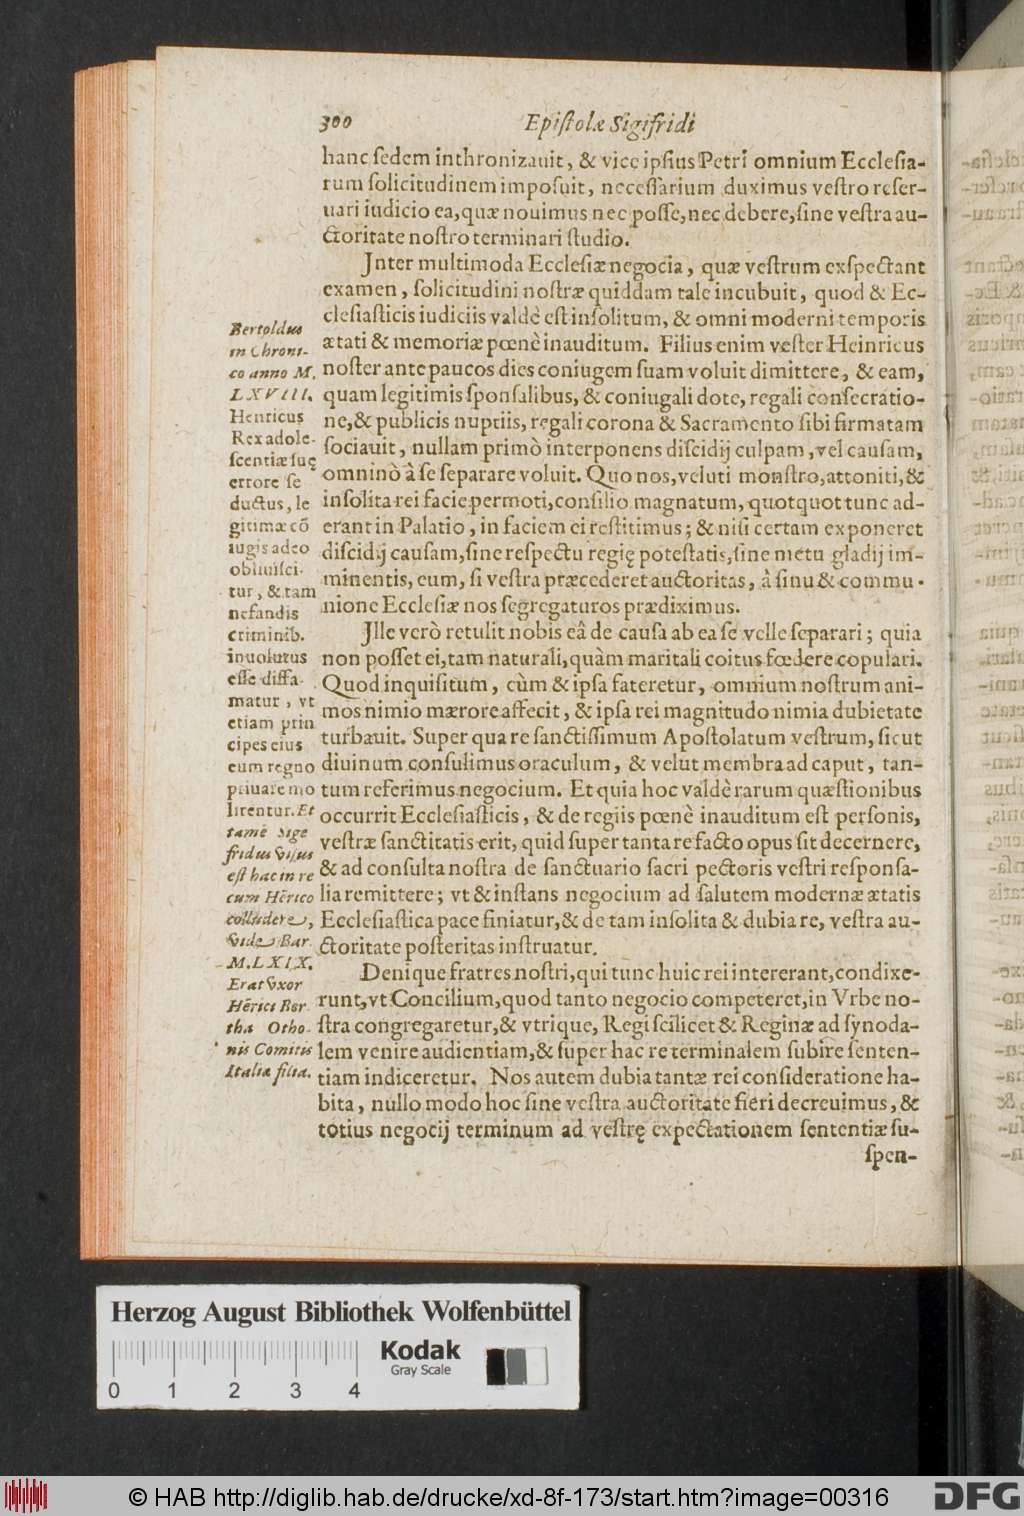 300 Epiſtolæ Sigifridi
hanc ſedem inthronizauit, & vice ipſius Petri omnium Eccleſia-
rum ſolicitudinem impoſuit, neceſſarium duximus veſtro reſer-
uari iudicio ea, quæ nouimus nec poſſe, nec debere, ſine veſtra au-
ctoritate noſtro terminari ſtudio.
Jnter multimoda Eccleſiæ negocia, quæ veſtrum exſpectant
examen, ſolicitudini noſtræ quiddam tale incubuit, quod & Ec-
cleſiaſticis iudiciis valdè eſt inſolitum, & omni moderni temporis
ætati & memoriæ pœnè inauditum. Filius enim veſter Heinricus
noſter ante paucos dies coniugem ſuam voluit dimittere, & eam,
quam legitimis ſponſalibus, & coniugali dote, regali conſecratio-
ne, & publicis nuptiis, regali corona & Sacramento ſibi firmatam
ſociauit, nullam primò interponens diſcidij culpam, vel cauſam,
omninò à ſe ſeparare voluit. Quo nos, veluti monſtro, attoniti, &
inſolita rei facie permoti, conſilio magnatum, quotquot tunc ad-
erant in Palatio, in faciem ei reſtitimus; & niſi certam exponeret
diſcidij cauſam, ſine reſpectu regię poteſtatis, ſine metu gladij im-
minentis, eum, ſi veſtra præcederet auctoritas, à ſinu & commu-
nione Eccleſiæ nos ſegregaturos prædiximus.
Jlle verò retulit nobis eâ de cauſa ab ea ſe velle ſeparari; quia
non poſſet ei, tam naturali, quàm maritali coitus fœdere copulari.
Quod inquiſitum, cùm & ipſa fateretur, omnium noſtrum ani-
mos nimio mærore affecit, & ipſa rei magnitudo nimia dubietate
turbauit. Super qua re ſanctiſſimum Apoſtolatum veſtrum, ſicut
diuinum conſulimus oraculum, & velut membra ad caput, tan-
tum referimus negocium. Et quia hoc valdè rarum quæſtionibus
occurrit Eccleſiaſticis, & de regiis pœnè inauditum eſt perſonis,
veſtræ ſanctitatis erit, quid ſuper tanta re facto opus ſit decernere,
& ad conſulta noſtra de ſanctuario ſacri pectoris veſtri reſponſa-
lia remittere; vt & inſtans negocium ad ſalutem modernæ ætatis
Eccleſiaſtica pace finiatur, & de tam inſolita & dubia re, veſtra au-
ctoritate poſteritas inſtruatur.
Denique fratres noſtri, qui tunc huic rei intererant, condixe-
runt, vt Concilium, quod tanto negocio competeret, in Vrbe no-
ſtra congregaretur, & vtrique, Regi ſcilicet & Reginæ ad ſynoda-
lem venire audientiam, & ſuper hac re terminalem ſubire ſenten-
tiam indiceretur. Nos autem dubia tantæ rei conſideratione ha-
bita, nullo modo hoc ſine veſtra auctoritate fieri decreuimus, &
totius negocij terminum ad veſtrę expectationem ſententiæ ſu-
ſpen-
Bertoldus
in Chroni-
co anno M.
LXVIII.
Henricus
Rex adole-
ſcentiæ ſuę
errore ſe
ductus, le
gitimæ cō
iugis adeo
obliuiſci-
tur, & tam
nefandis
criminib.
inuolutus
eſſe diffa-
matur, vt
etiam prin
cipes eius
eum regno
priuare mo
lirentur. Et
tamē Sige
fridus viſus
eſt hac in re
cum Hērico
colludere,
vide Bar.
M.LXIX.
Erat vxor
Hērici Ber-
tha Otho-
nis Comitis
Italiæ filia.
Herzog August Bibliothek Wolfenbüttel
Kodak
Gray Scale
0 1 2 3 4
© HAB http://diglib.hab.de/drucke/xd-8f-173/start.htm?image=00316
DFG